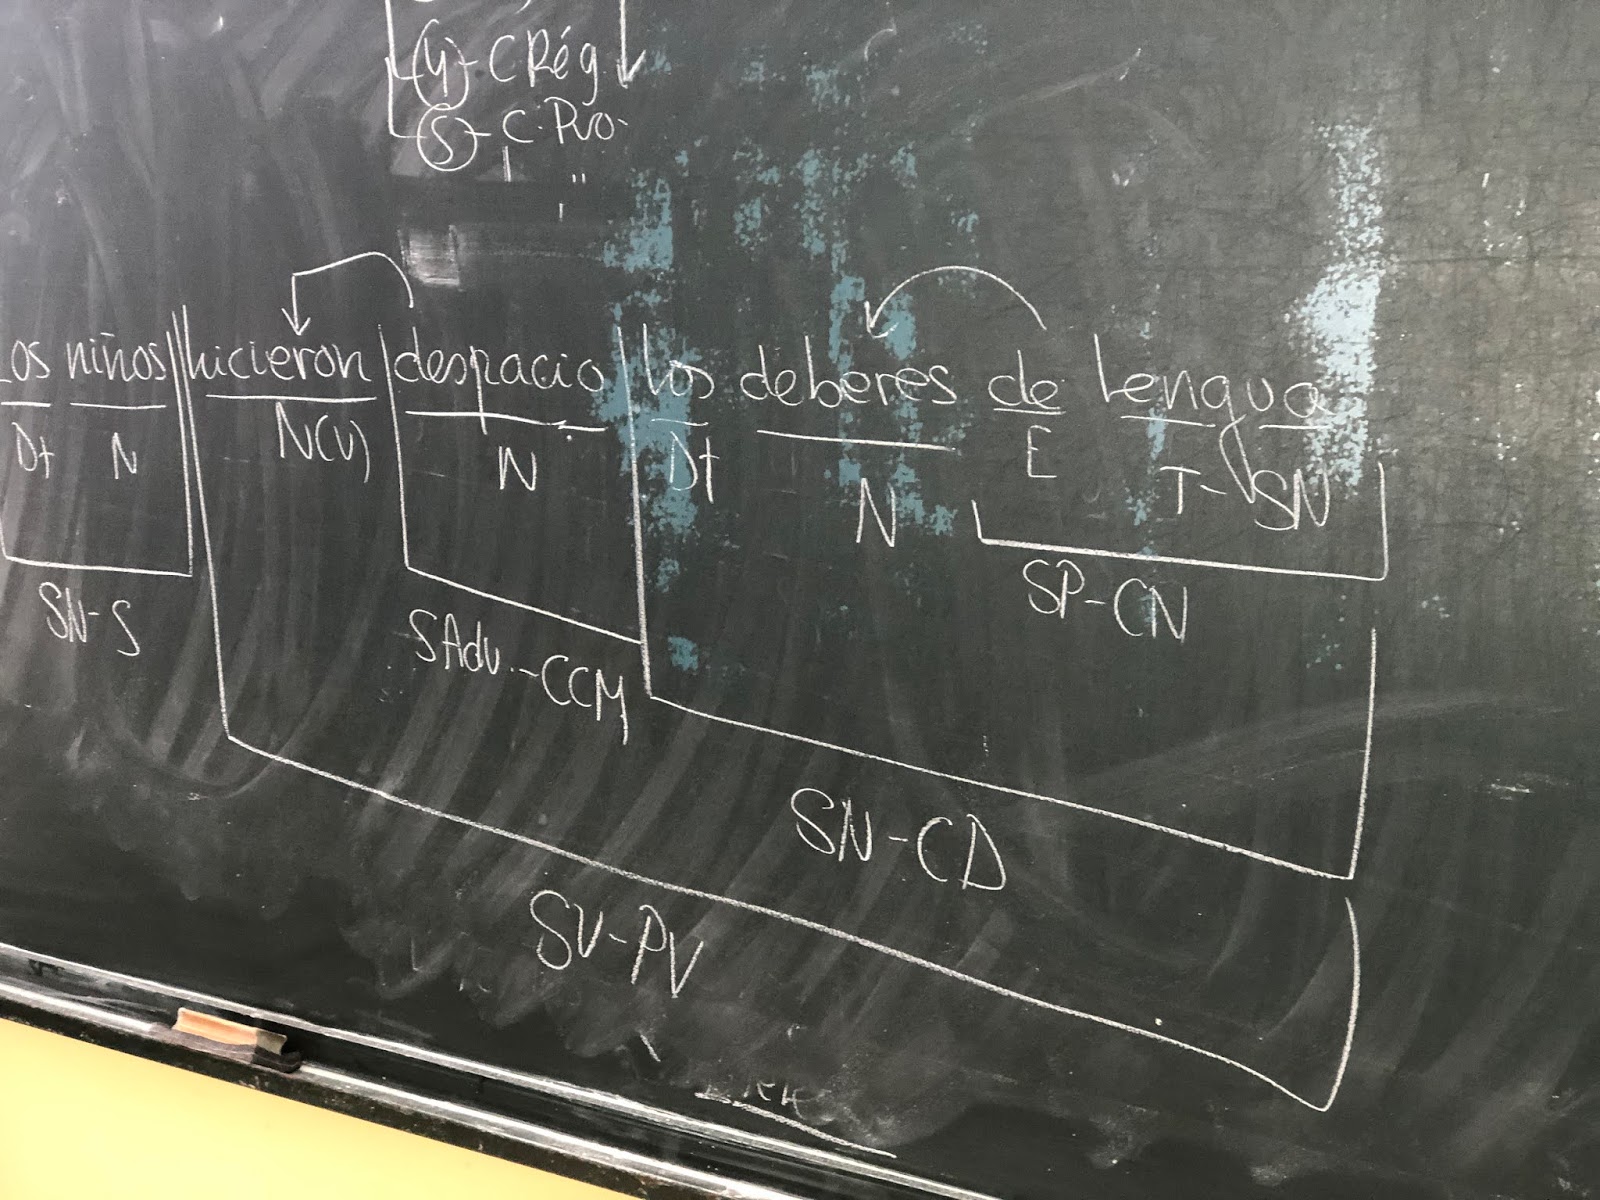 (4) - C Rég.
(5) - C. Pvo.
Los niños hicieron despacio los deberes de Lengua
Dt N N(V) N Dt N E T-SN
SN-S SAdv.-CCM SP-CN
SN-CD
SV-PV